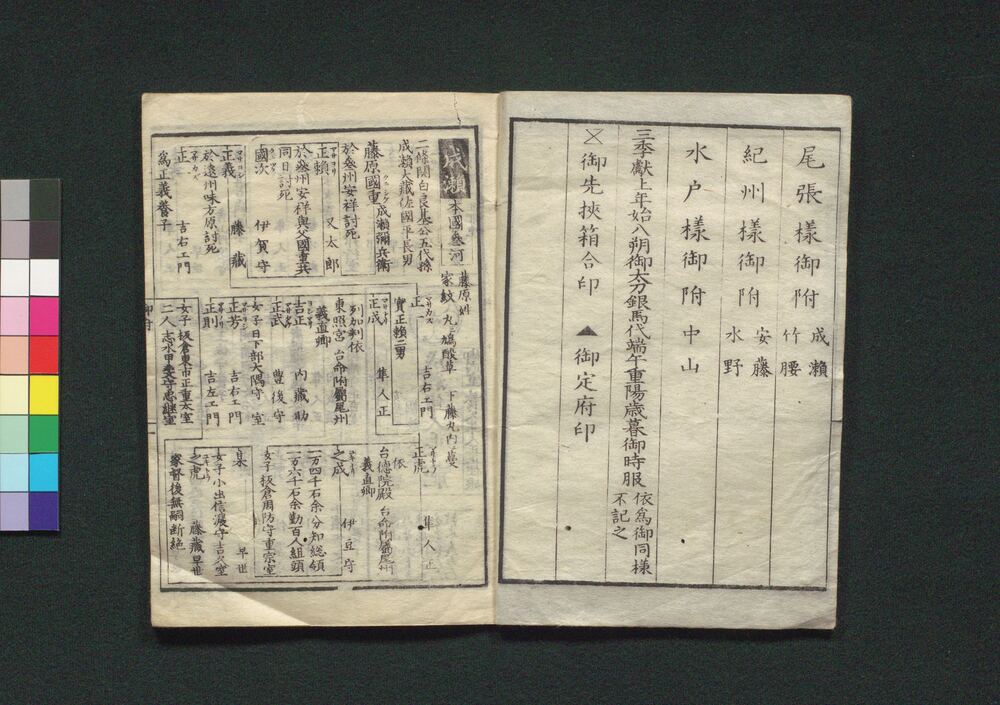 尾張様御附 成瀬 竹腰
紀州様御附 安藤 水野
水戸様御附 中山
三季献上年始八朔御太刀銀馬代端午重陽歳暮御時服 依為御同様不記之
御先挾箱合印 ▲御定府印
成瀬 本國参河 藤原姓
家紋 丸ニ鳩酸草 下藤丸内ニ
二條関白良基公五代孫
成瀬大藏佐國平長男
藤原國重 成瀬彌兵衛
於参州安祥討死
正頼 又太郎
於参州安祥與父國重兵
同日討死
國次 伊賀守
正義 藤藏
於遠州味方原討死
正一 吉右エ門
為正義養子
正一 吉右エ門
實正頼二男
正成 隼人正
列加判依
東照宮 台命附屬尾州
義直卿
吉正 内藏助
正武 豊後守
女子 日下部大隅守室
正芳 吉右エ門
正則 吉左エ門
女子 板倉東市正重太室
二人 志水甲斐守忠継室
正虎 隼人正
依
台徳院殿 台命附屬尾州
義直卿
之成 伊豆守
一万四千石余分知総領
一万六千石余勤百人組頭
女子 板倉周防守重宗室
某 早世
女子 小出信濃守吉久室
之虎 藤藏早世
家督後無嗣断絶